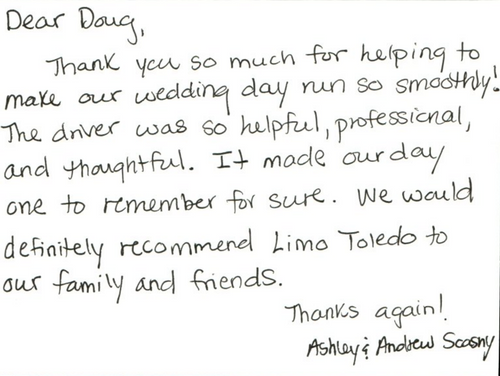 Dear Doug,
Thank you so much for helping to
make our wedding day run so smoothly!
The driver was so helpful, professional,
and thoughtful. It made our day
one to remember for sure. We would
definitely recommend Limo Toledo to
our family and friends.
Thanks again!
Ashley & Andrew Scosny